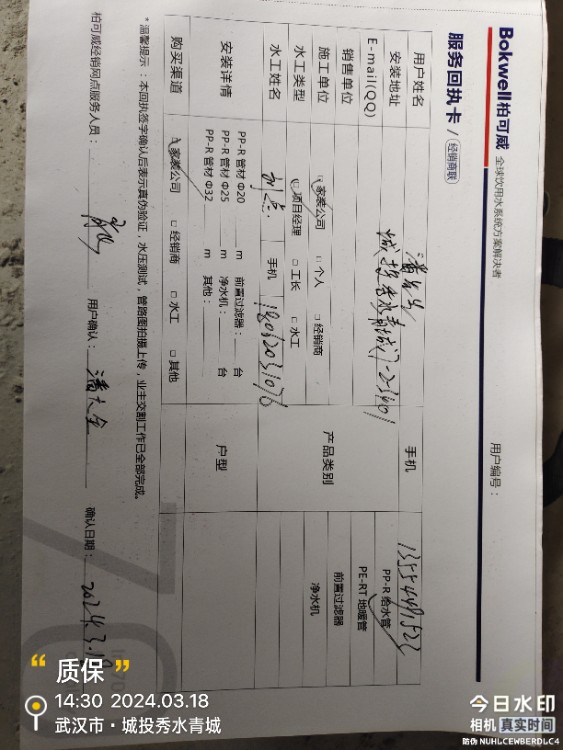 Bokwell 柏可威 全球饮用水系统方案解决者
用户编号：
服务回执卡 / 经销商联
用户姓名 手机 13554491523
安装地址 城投秀水青城7-2-3401
E-mail(QQ)
销售单位
施工单位 □家装公司 □个人 □经销商
水工类型 □项目经理 □工长 □水工
水工姓名 手机 18062031076
产品类别
PP-R 给水管
PE-RT 地暖管
前置过滤器
净水机
安装详情
PP-R 管材 Φ20 m 前置过滤器： 台
PP-R 管材 Φ25 m 净水机： 台
PP-R 管材 Φ32 m 其他：
户型
购买渠道 □家装公司 □经销商 □水工 □其他
*温馨提示：本回执签字确认后表示真伪验证，水压测试，管路图拍摄上传，业主交割工作已全部完成。
柏可威经销网点服务人员： 用户确认： 潘大金 确认日期： 2024.3.18
“质保”
14:30 2024.03.18
武汉市·城投秀水青城
今日水印
相机 真实时间
防伪 NUHLCEWBERDLC4